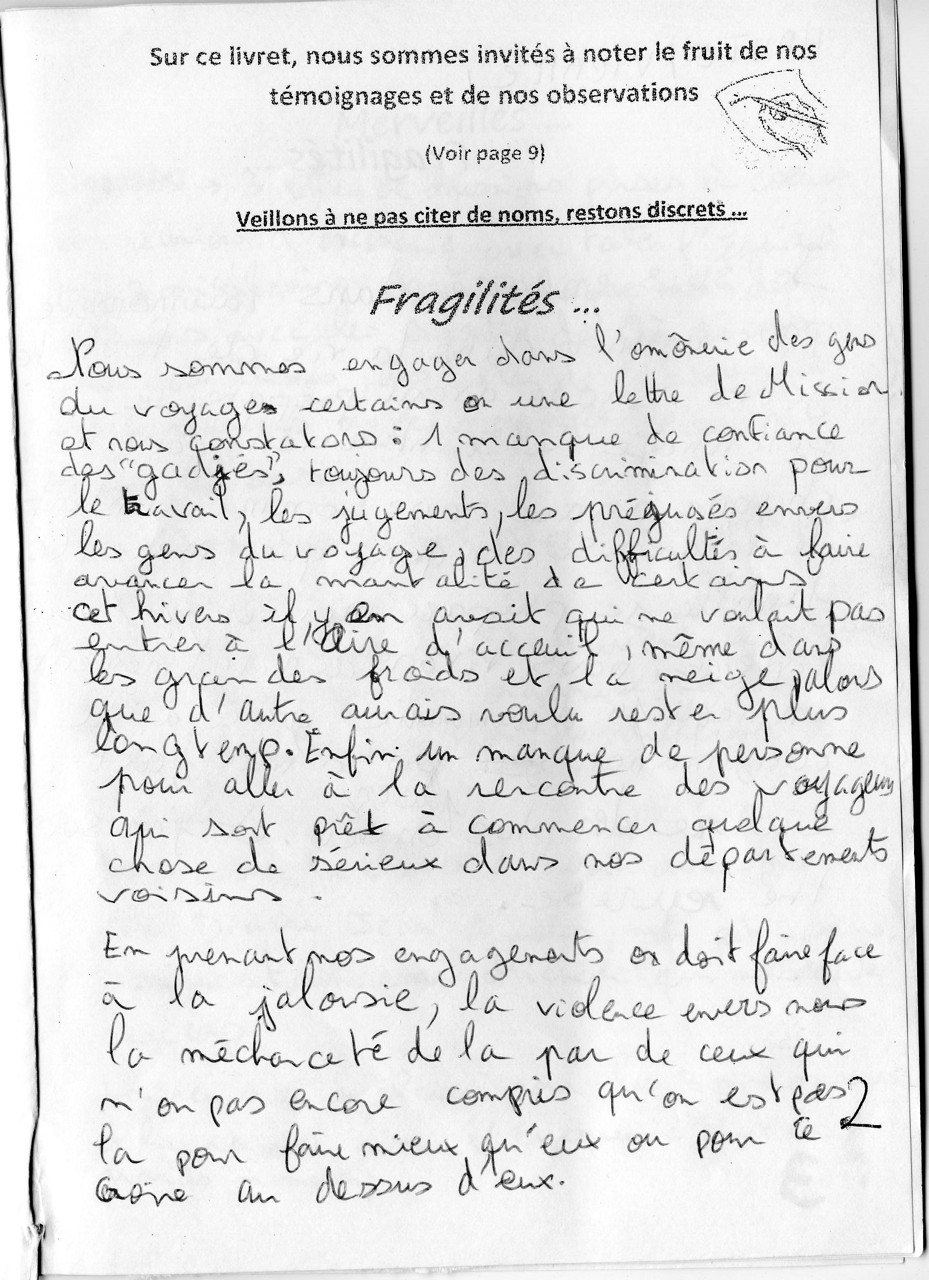 Sur ce livret, nous sommes invités à noter le fruit de nos
témoignages et de nos observations
(Voir page 9)
Veillons à ne pas citer de noms, restons discrets ...
Fragilités ...
Nous sommes engager dans l'omônerie des gens
du voyages certains on une lettre de Mission.
et nous constatons : 1 manque de confiance
des "gadjés", toujours des discrimination pour
le travail, les jugements, les préjugés envers
les gens du voyage, des difficultés à faire
avancer la mantalité de certains
cet hivers il y en avait qui ne voulait pas
entrer à l'Aire d'acceuil, même dans
les grandes froids et la neige, alors
que d'autre aurais voulu rester plus
longtemp. Enfin un manque de personne
pour aller à la rencontre des voyageurs
qui sont prêt à commencer quelque
chose de sérieux dans nos départements
voisins.
En prenant nos engagements on doit faire face
à la jalousie, la violence envers nous
la méchanceté de la par de ceux qui
n'on pas encore compris qu'on est pas
la pour faire mieux qu'eux ou pour ce
croire au dessus d'eux.
2